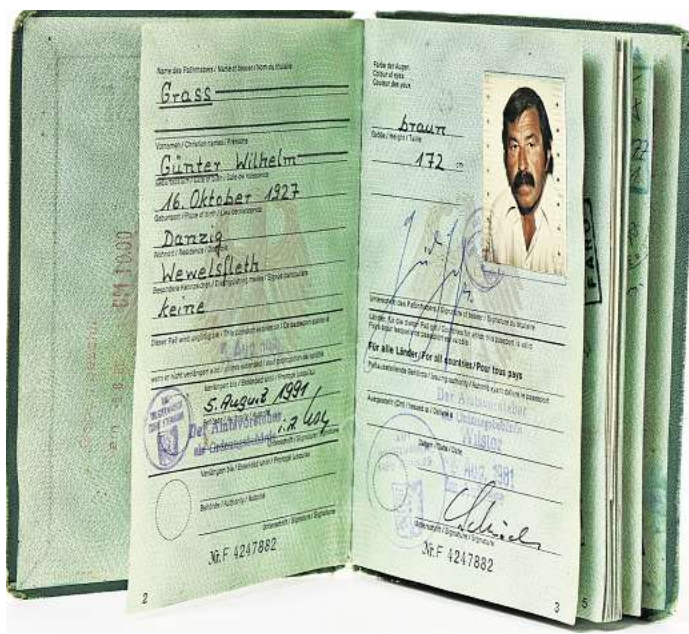 Name des Paßinhabers / Name of bearer / Nom du titulaire
Grass
Vornamen / Christian names / Prénoms
Günter Wilhelm
Geburtsdatum / Date of birth / Date de naissance
16. Oktober 1927
Geburtsort / Place of birth / Lieu de naissance
Danzig
Wohnort / Residence / Domicile
Wewelsfleth
Besondere Kennzeichen / Distinguishing marks / Signes particuliers
keine
Dieser Paß wird ungültig am / This passport expires on / Ce passeport expire le
wenn er nicht verlängert wird / unless extended / sauf prorogation de validité
Verlängert bis / Extended until / Prorogé jusqu'au
5. August 1991
Behörde / Authority / Autorité
Der Amtsvorsteher
als Ordnungsbehörde
i.A.
Unterschrift / Signature / Signature
Verlängert bis / Extended until / Prorogé jusqu'au
Behörde / Authority / Autorité
Unterschrift / Signature / Signature
Nr. F 4247882
2
Farbe der Augen
Colour of eyes
Couleur des yeux
braun
Größe / Height / Taille
172 cm
Unterschrift des Paßinhabers / Signature of bearer / Signature du titulaire
Länder, für die dieser Paß gilt / Countries for which this passport is valid
Pays pour lesquels ce passeport est valable
Für alle Länder / For all countries / Pour tous pays
Paßausstellende Behörde / Issuing authority / Autorité ayant délivré le passeport
Der Amtsvorsteher
als Ordnungsbehörde
Wilster
Ausgestellt (Ort) / Issued at / Délivré à
Datum / Date / Date
AUG. 1981
Unterschrift / Signature / Signature
Nr. F 4247882
3
5
FARO